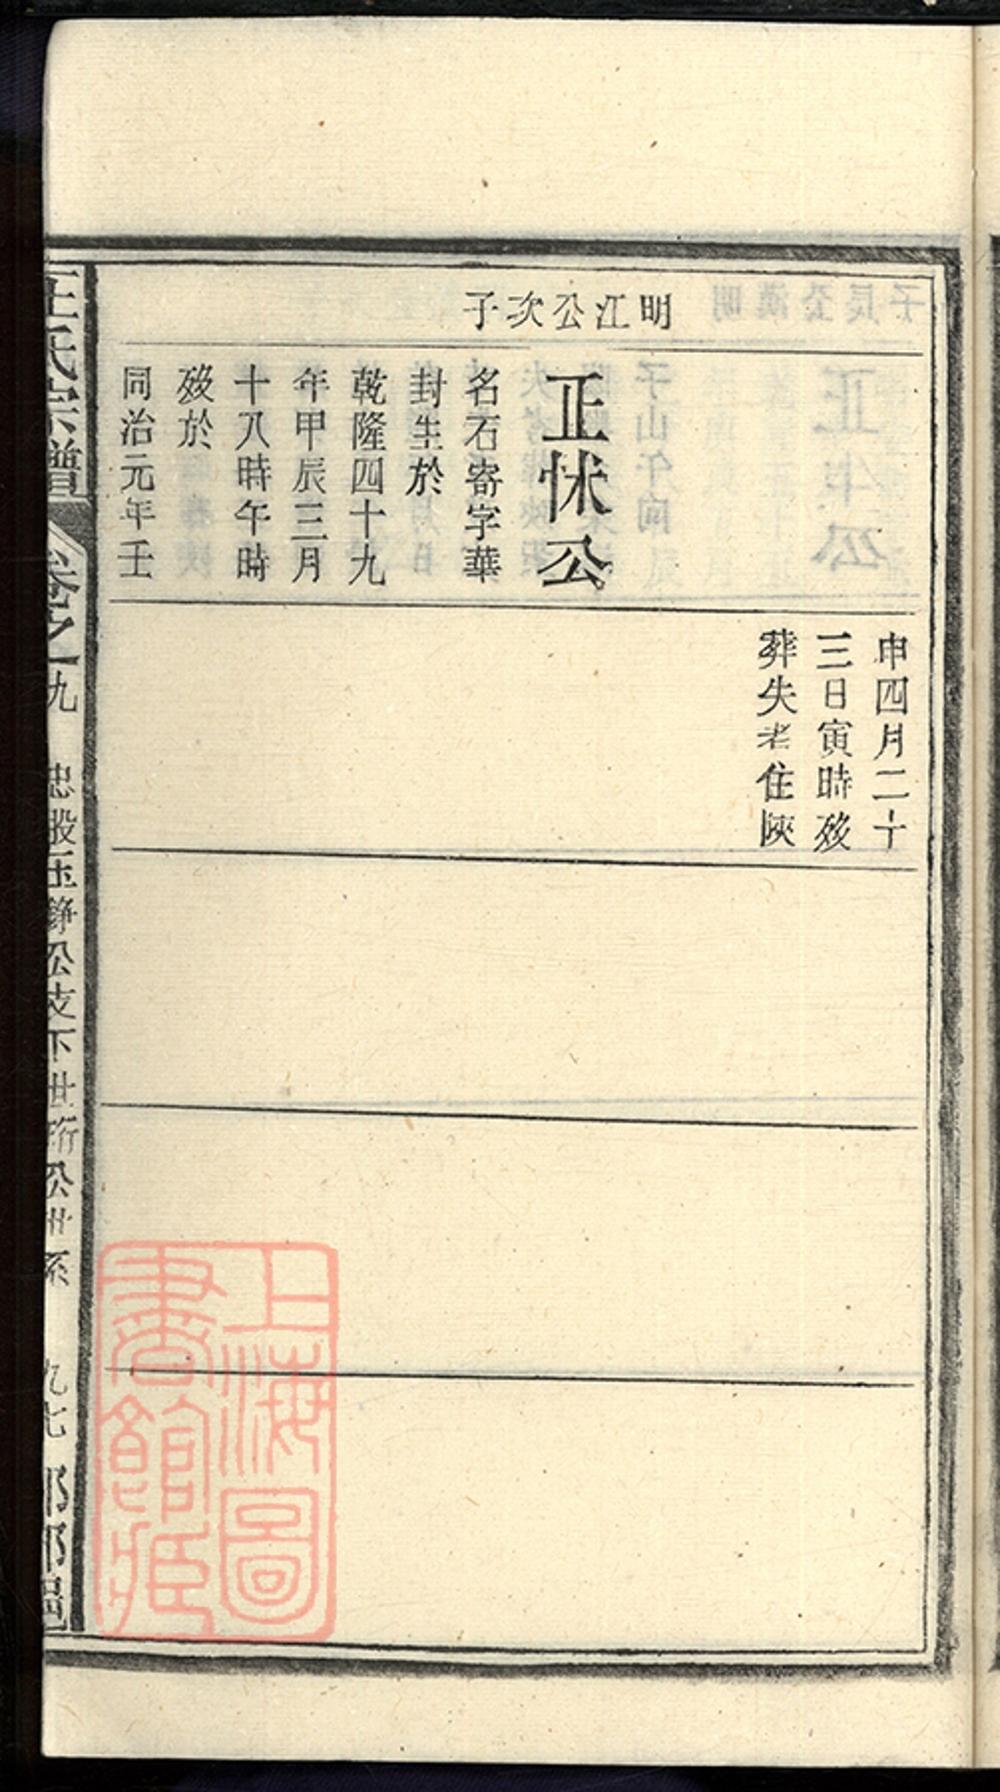 明江公次子
正怵公
名石寄字華
封生於
乾隆四十九
年甲辰三月
十八時午時
殁於
同治元年壬
申四月二十
三日寅時殁
葬失老住陝
王氏宗譜
卷之一九
忠股玉錚公支下世珩公世系
九七
上海圖
書館藏